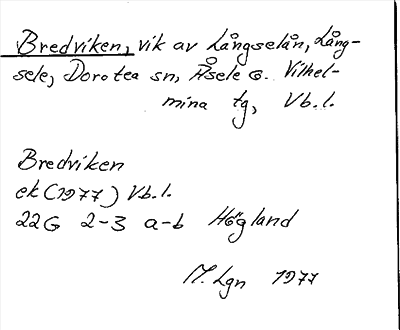 Bredviken, vik av Långselån, Lång-
sele, Dorotea sn, Åsele o. Vilhel-
mina tg, Vb.l.
Bredviken
ek (1977) Vb.l.
22G 2-3 a-b Högland
M. Lgn 1977